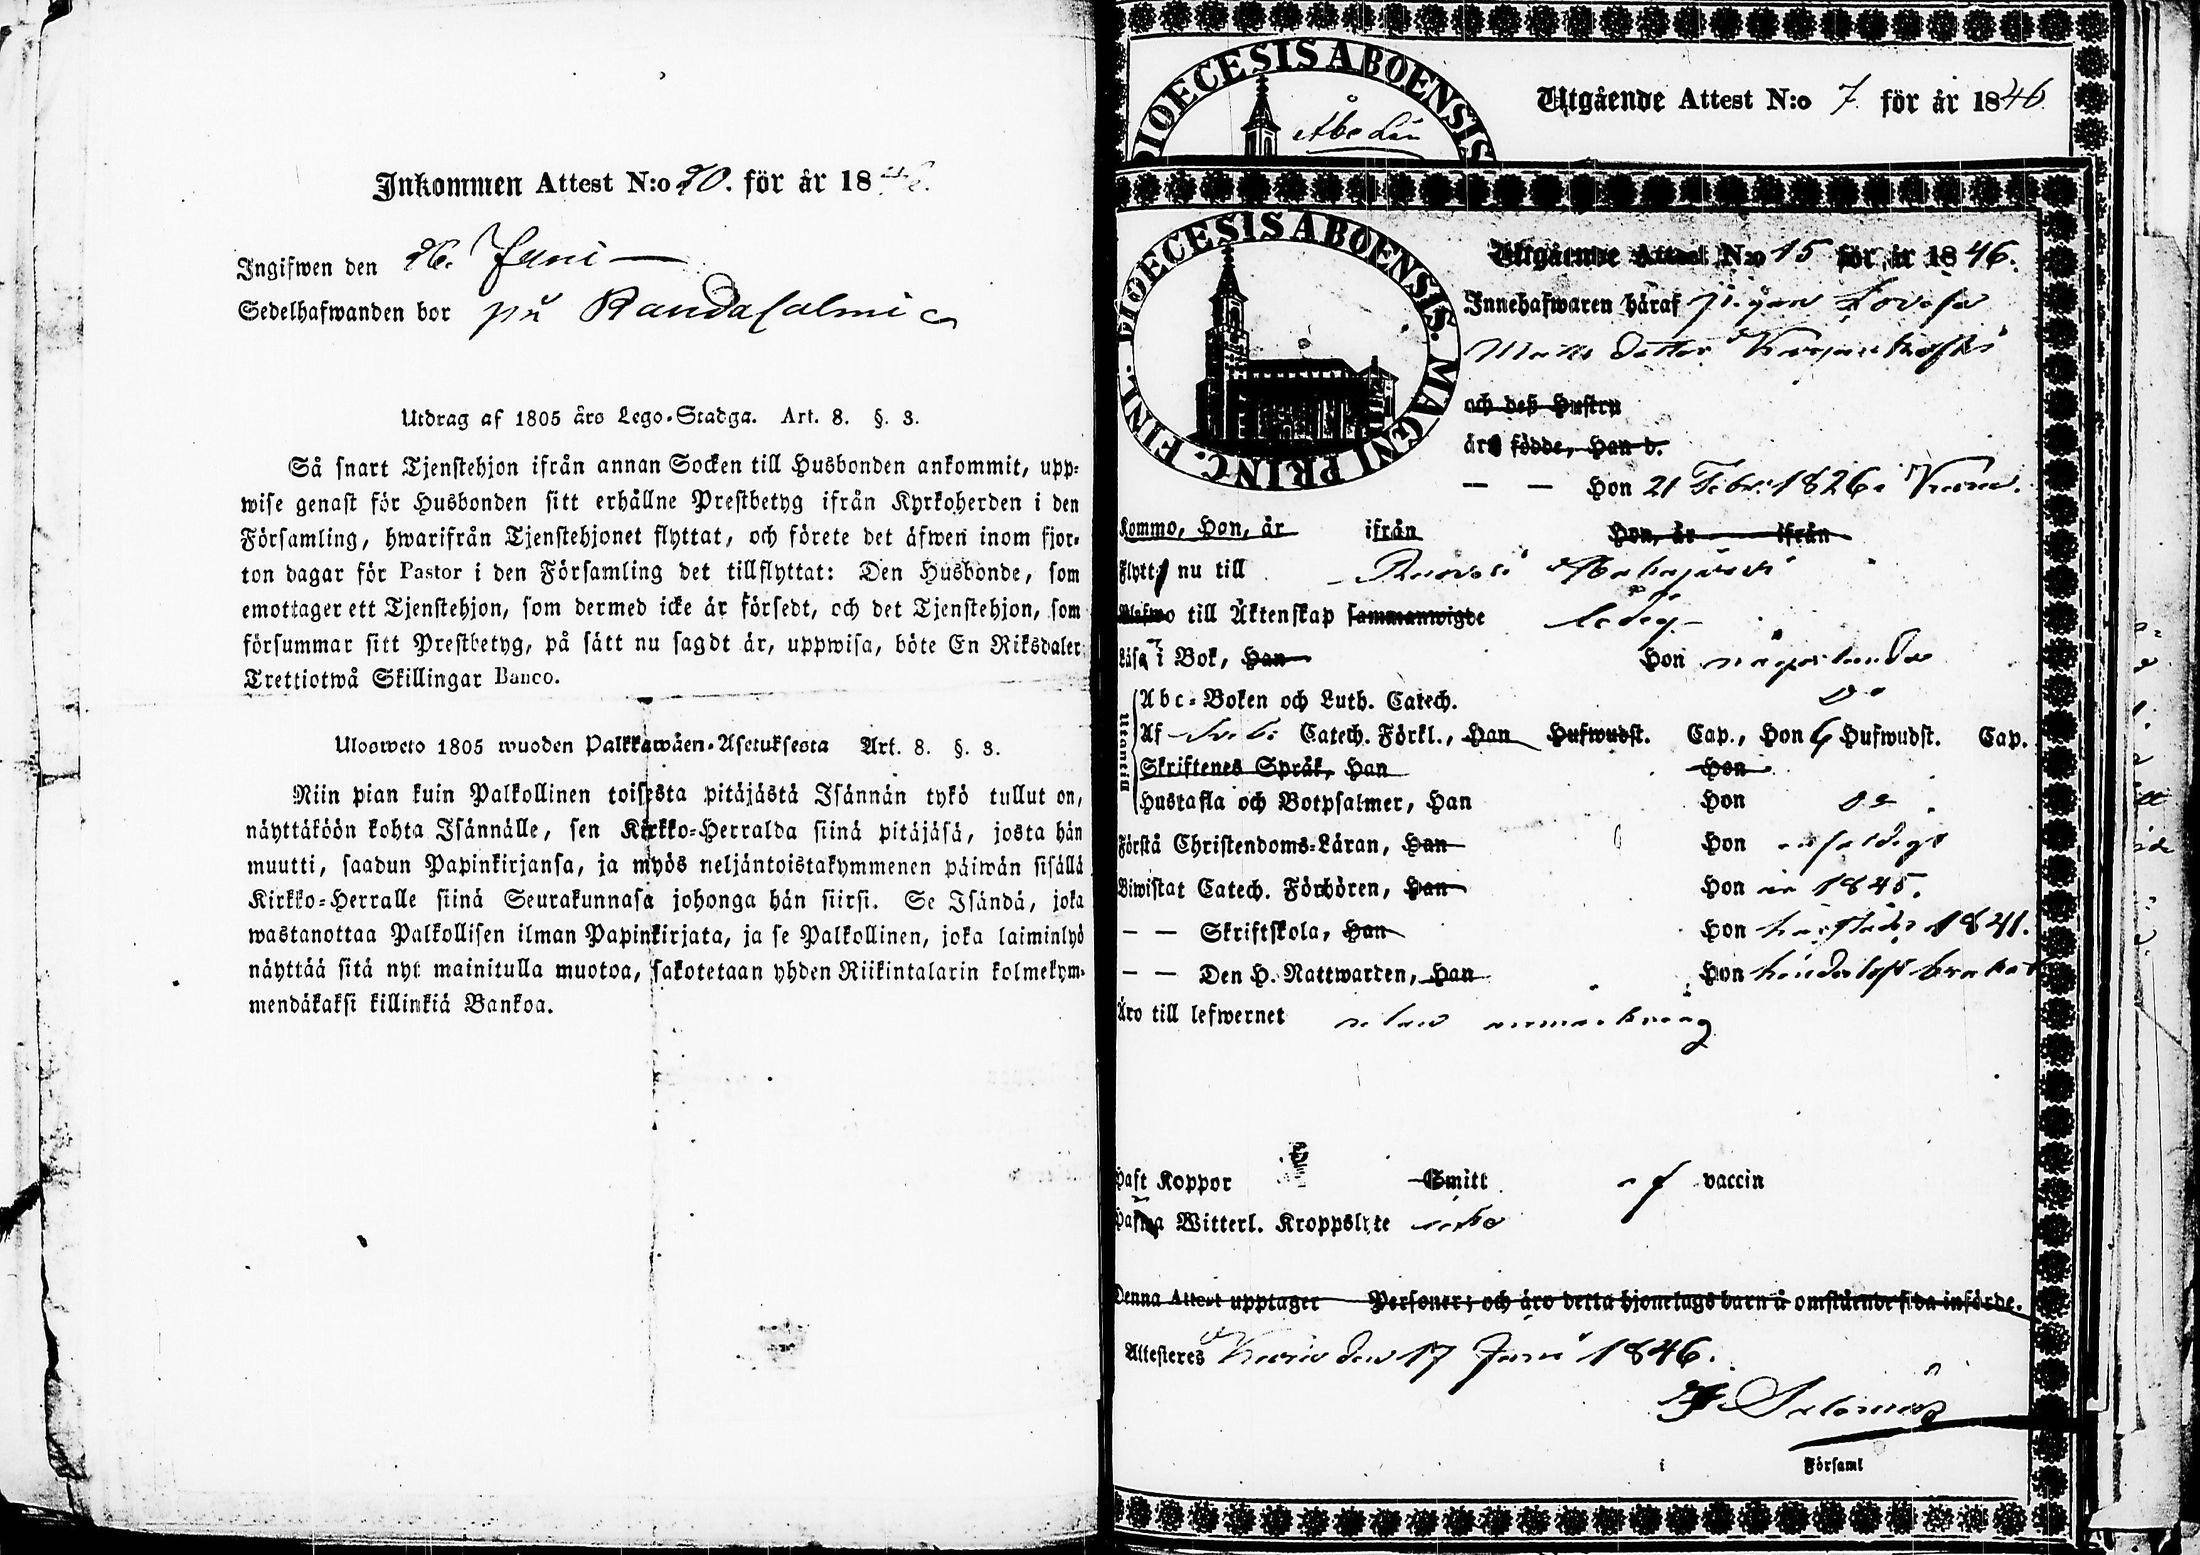 Inkommen Attest N:o 20. för år 1846.
Ingifwen den 26. Juni
Sedelhafwanden bor på Randasalmi
Utdrag af 1805 års Lego-Stadga. Art. 8. §. 3.
Så snart Tjenstehjon ifrån annan Socken till Husbonden ankommit, upp-
wise genast för Husbonden sitt erhållne Prestbetyg ifrån Kyrkoherden i den
Församling, hwarifrån Tjenstehjonet flyttat, och förete det äfwen inom fjor-
ton dagar för Pastor i den Församling det tillflyttat: Den Husbonde, som
emottager ett Tjenstehjon, som dermed icke är försedt, och det Tjenstehjon, som
försummar sitt Prestbetyg, på sätt nu sagdt är, uppwisa, böte En Riksdaler
Trettiotwå Skillingar Banco.
Ulosweto 1805 wuoden Palkkawäen-Asetuksesta Art. 8. §. 3.
Niin pian kuin Palkollinen toisesta pitäjästä Isännän tykö tullut on,
näyttäköön kohta Isännälle, sen Kirkko-Herralda siinä pitäjäsä, josta hän
muutti, saadun Papinkirjansa, ja myös neljäntoistakymmenen päiwän sisällä
Kirkko-Herralle siinä Seurakunnasa johonga hän siirsi. Se Isändä, joka
wastanottaa Palkollisen ilman Papinkirjata, ja se Palkollinen, joka laiminlyö
näyttää sitä nyt mainitulla muotoa, sakotetaan yhden Riikintalarin kolmekym-
mendäkaksi killinkiä Bankoa.
DIOECESIS ABOENSIS
Åbo Län
Utgående Attest N:o 7 för år 1846.
DIOECESIS ABOENSIS. MAGNI PRINC. FINL.
Utgående Attest N:o 15 för år 1846.
Innehafwaren häraf Pigan Lovisa
Matts dotter
och deß Hustru
äro födde, Han d.
— — Hon 21 Febr. 1826 i
Kommo, Han, år ifrån Hon, år ifrån
Flytta nu till
till Äktenskap sammanwigde ledig
Läsa i Bok, Han Hon någorlunda
Utantill
Abc-Boken och Luth. Catech. do
Af Catech. Förkl., Han Hufwudst. Cap., Hon 6 Hufwudst. Cap.
Skriftenes Språk, Han Hon
Hustafla och Botpsalmer, Han Hon do
Förstå Christendoms-Läran, Han Hon
Biwistat Catech. Förhören, Han Hon år 1845.
— — Skriftskola, Han Hon 1841.
— — Den H. Nattwarden, Han Hon
Äro till lefwernet utan anmärkning
Haft Koppor Smitt af vaccin
Hafwa Witterl. Kroppslyte icke
Denna Attest upptager Personer; och äro detta hjonelags barn å omstående sida införde.
Attesteres den 17 Juni 1846.
i Församl